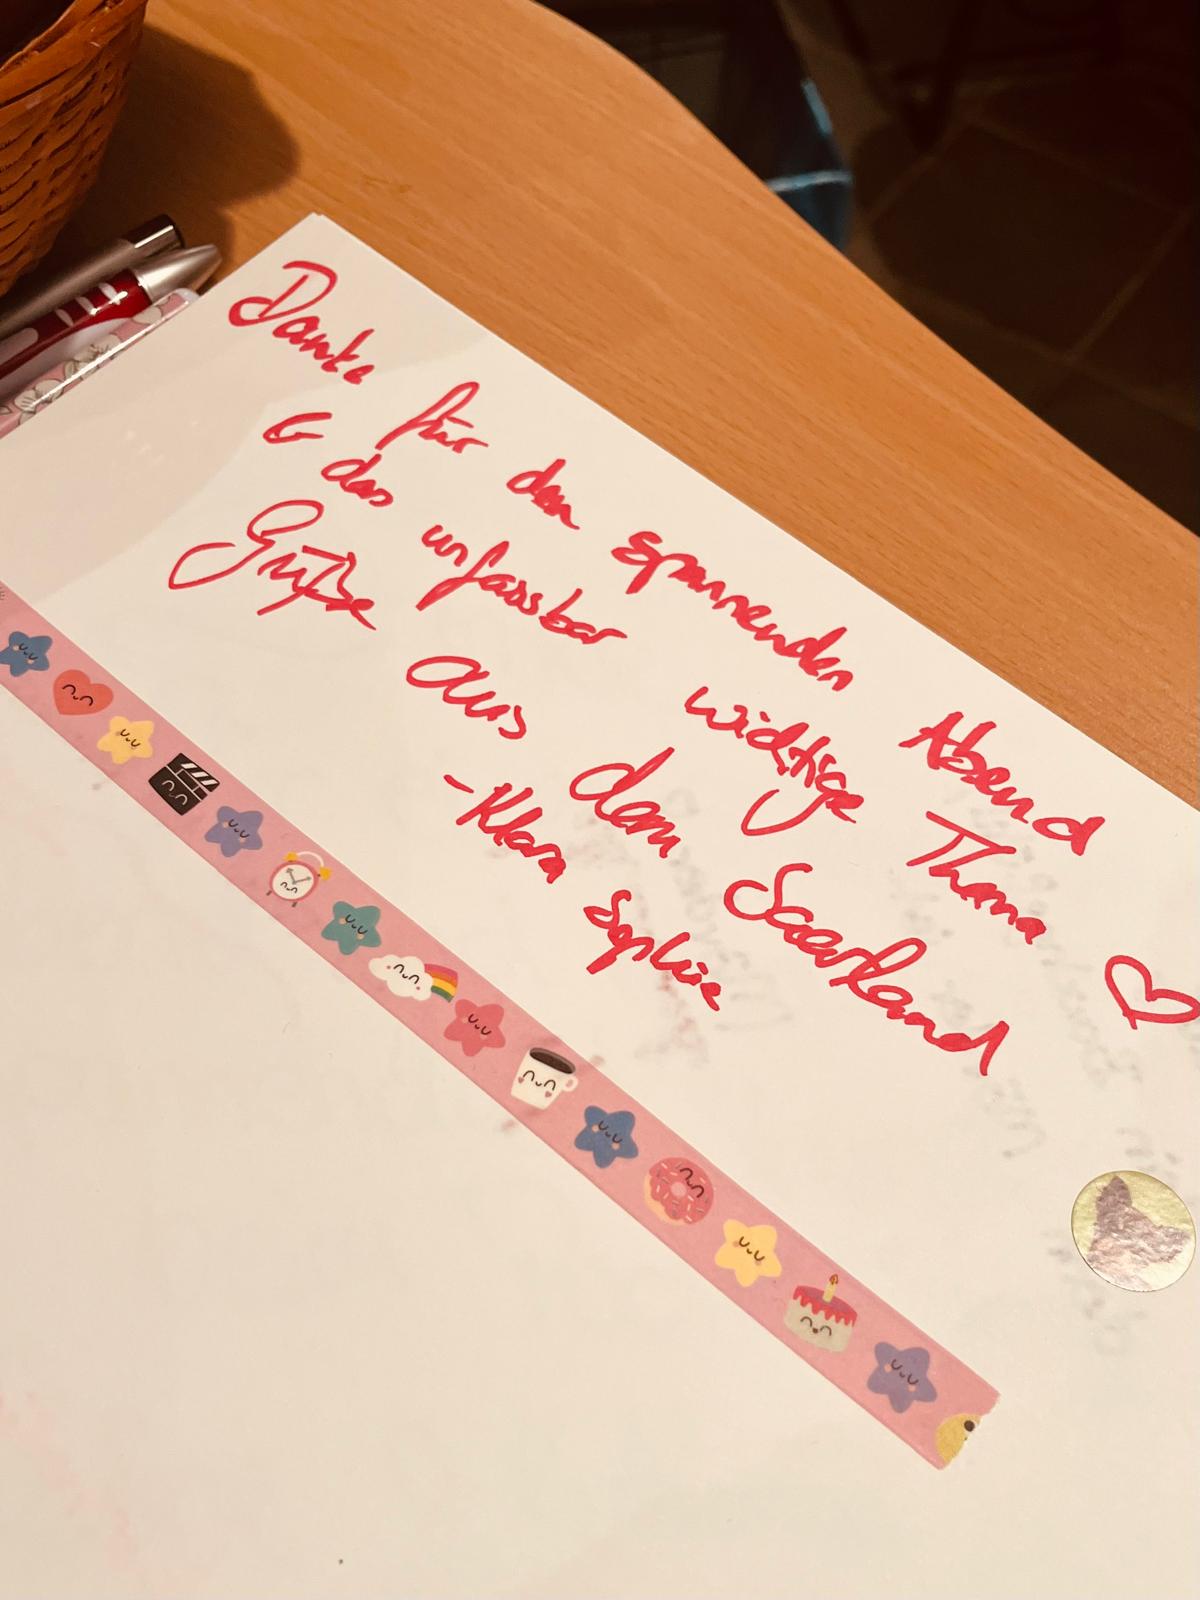 Danke für den spannenden Abend
& das unfassbar wichtige Thema ♡
Grüße aus dem Saarland
- Klara Sophie